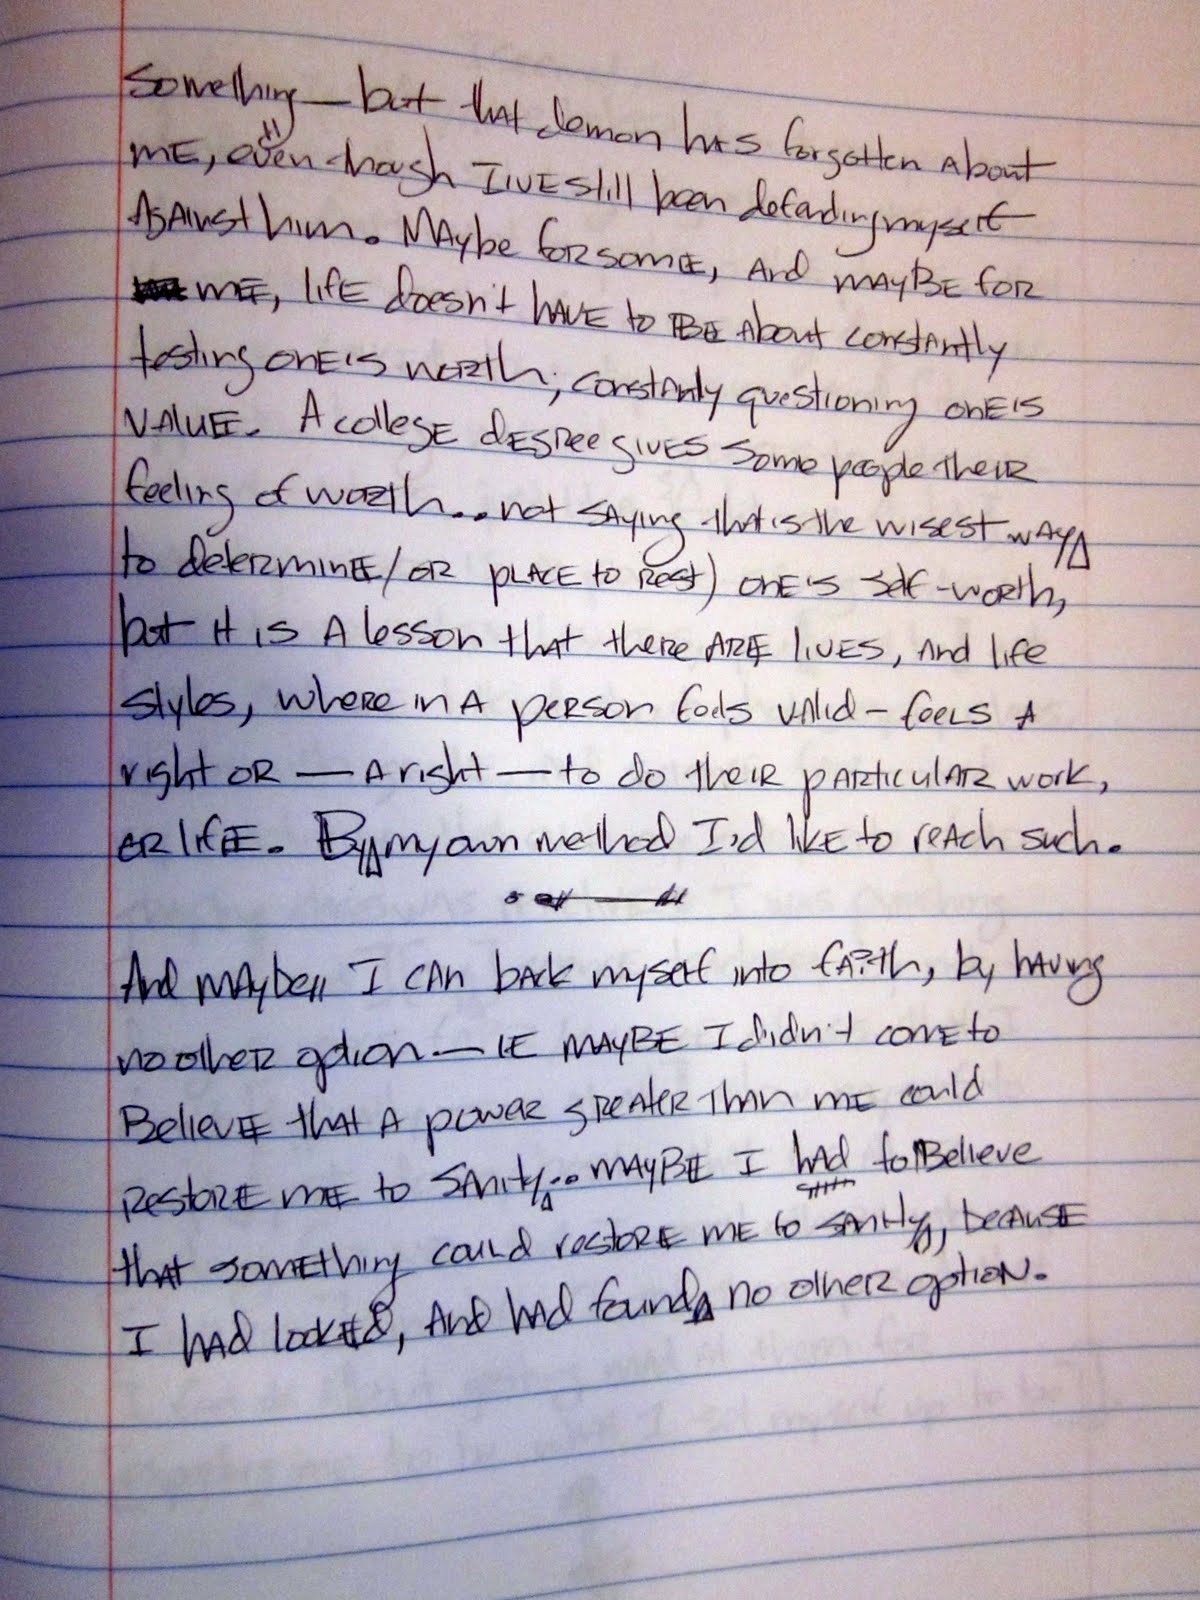 Something — but that demon has forgotten about
me, even though I've still been defending myself
against him. Maybe for some, and maybe for
me, life doesn't have to be about constantly
testing one's worth, constantly questioning one's
value. A college degree gives some people their
feeling of worth... not saying that is the wisest way
to determine (or place to rest) one's self-worth,
but it is a lesson that there are lives, and life
styles, where in a person feels valid – feels a
right or — a right — to do their particular work,
or life. By my own method I'd like to reach such.
And maybe I can back myself into faith, by having
no other option — IE maybe I didn't come to
Believe that a power greater than me could
restore me to sanity... maybe I had to Believe
that something could restore me to sanity, because
I had looked, and had found no other option.